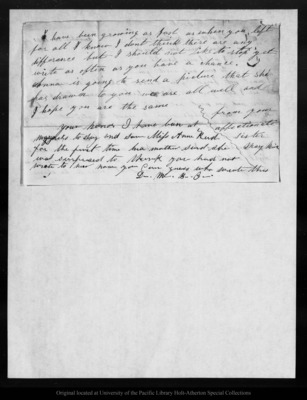 I have been growing as fast as when you left
for all I know I dont think there are any
difference but I should not like to stop yet
write as often as you have a chance.
Anna is going to send a picture that she
has drawn to you we are all well and
I hope you are the same
from your
affectionate
sister
Your honor I have been at
to day and saw Miss Ann Reid
for the first time her mother said she
was surprised to think you had not
wrote to her now you can guess who wrote this
D. M. B. 3
Original located at University of the Pacific Library Holt-Atherton Special Collections